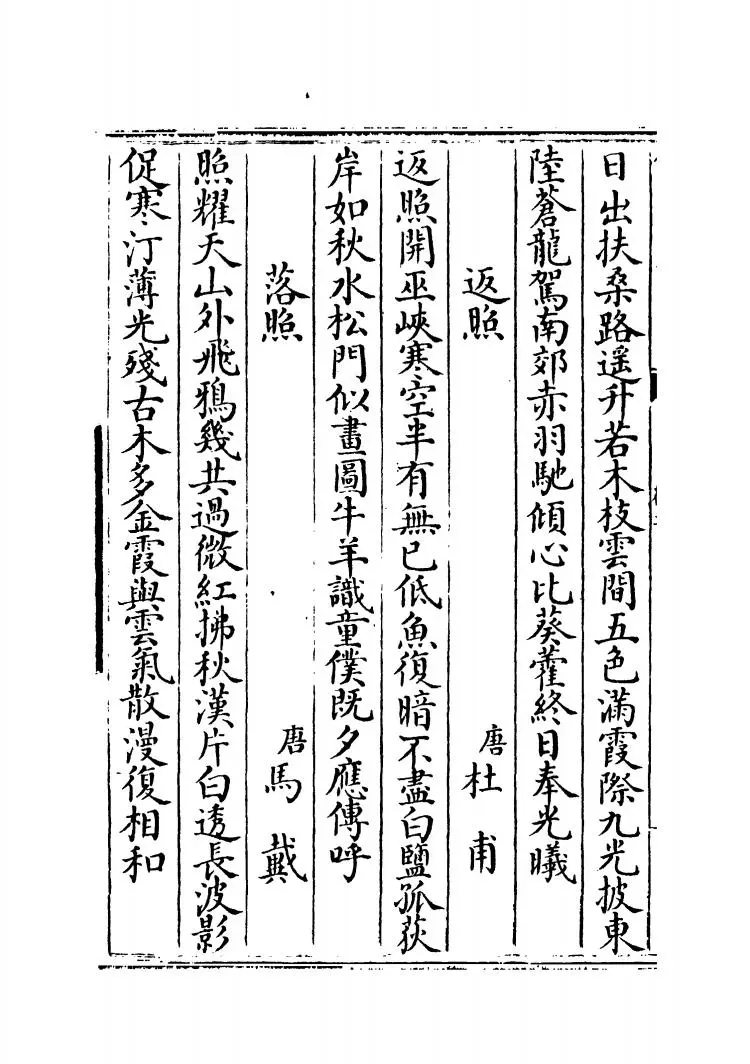 日出扶桑路遥升若木枝雲間五色滿霞際九光披東
陸蒼龍駕南郊赤羽馳傾心比葵藿終日奉光曦
返照
唐杜甫
返照開巫峽寒空半有無已低魚復暗不盡白鹽孤荻
岸如秋水松門似畫圖牛羊識童僕既夕應傳呼
落照
唐馬戴
照耀天山外飛鴉幾共過微紅拂秋漢片白透長波影
促寒汀薄光殘古木多金霞與雲氣散漫復相和